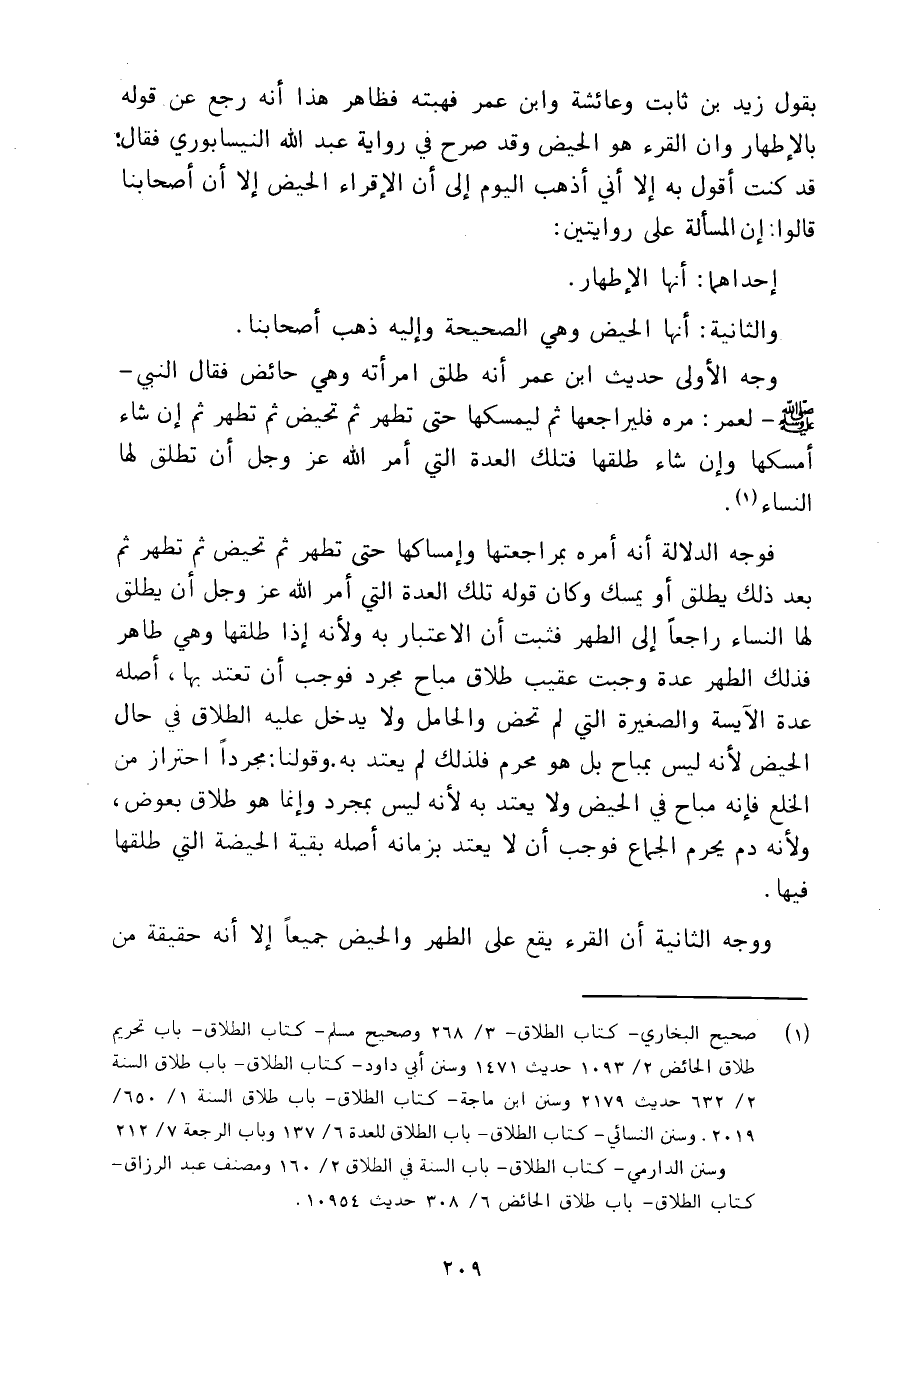 بقول زيد بن ثابت وعائشة وابن عمر فهبته فظاهر هذا أنه رجع عن قوله
بالإطهار وان القرء هو الحيض وقد صرح في رواية عبد الله النيسابوري فقال:
قد كنت أقول به إلا أني أذهب اليوم إلى أن الإقراء الحيض إلا أن أصحابنا
قالوا: إن المسألة على روايتين:
إحداهما: أنها الإطهار.
والثانية: أنها الحيض وهي الصحيحة وإليه ذهب أصحابنا.
وجه الأولى حديث ابن عمر أنه طلق امرأته وهي حائض فقال النبي -
ﷺ - لعمر: مره فليراجعها ثم ليمسكها حتى تطهر ثم تحيض ثم تطهر ثم إن شاء
أمسكها وإن شاء طلقها فتلك العدة التي أمر الله عز وجل أن تطلق لها
النساء (١).
فوجه الدلالة أنه أمره بمراجعتها وإمساكها حتى تطهر ثم تحيض ثم تطهر ثم
بعد ذلك يطلق أو يمسك وكان قوله تلك العدة التي أمر الله عز وجل أن يطلق
لها النساء راجعاً إلى الطهر فثبت أن الاعتبار به ولأنه إذا طلقها وهي طاهر
فذلك الطهر عدة وجبت عقيب طلاق مباح مجرد فوجب أن تعتد بها، أصله
عدة الآيسة والصغيرة التي لم تحض والحامل ولا يدخل عليه الطلاق في حال
الحيض لأنه ليس بمباح بل هو محرم فلذلك لم يعتد به. وقولنا: مجرداً احتراز من
الخلع فإنه مباح في الحيض ولا يعتد به لأنه ليس بمجرد وإنما هو طلاق بعوض،
ولأنه دم يحرم الجماع فوجب أن لا يعتد بزمانه أصله بقية الحيضة التي طلقها
فيها.
ووجه الثانية أن القرء يقع على الطهر والحيض جميعاً إلا أنه حقيقة من
(١) صحيح البخاري - كتاب الطلاق - ٣/ ٢٦٨ وصحيح مسلم - كتاب الطلاق - باب تحريم
طلاق الحائض ٢/ ١٠٩٣ حديث ١٤٧١ وسنن أبي داود - كتاب الطلاق - باب طلاق السنة
٢/ ٦٣٢ حديث ٢١٧٩ وسنن ابن ماجة - كتاب الطلاق - باب طلاق السنة ١/ ٦٥٠/
٢٠١٩. وسنن النسائي - كتاب الطلاق - باب الطلاق للعدة ٦/ ١٣٧ وباب الرجعة ٧/ ٢١٢
وسنن الدارمي - كتاب الطلاق - باب السنة في الطلاق ٢/ ١٦٠ ومصنف عبد الرزاق -
كتاب الطلاق - باب طلاق الحائض ٦/ ٣٠٨ حديث ١٠٩٥٤.
٢٠٩